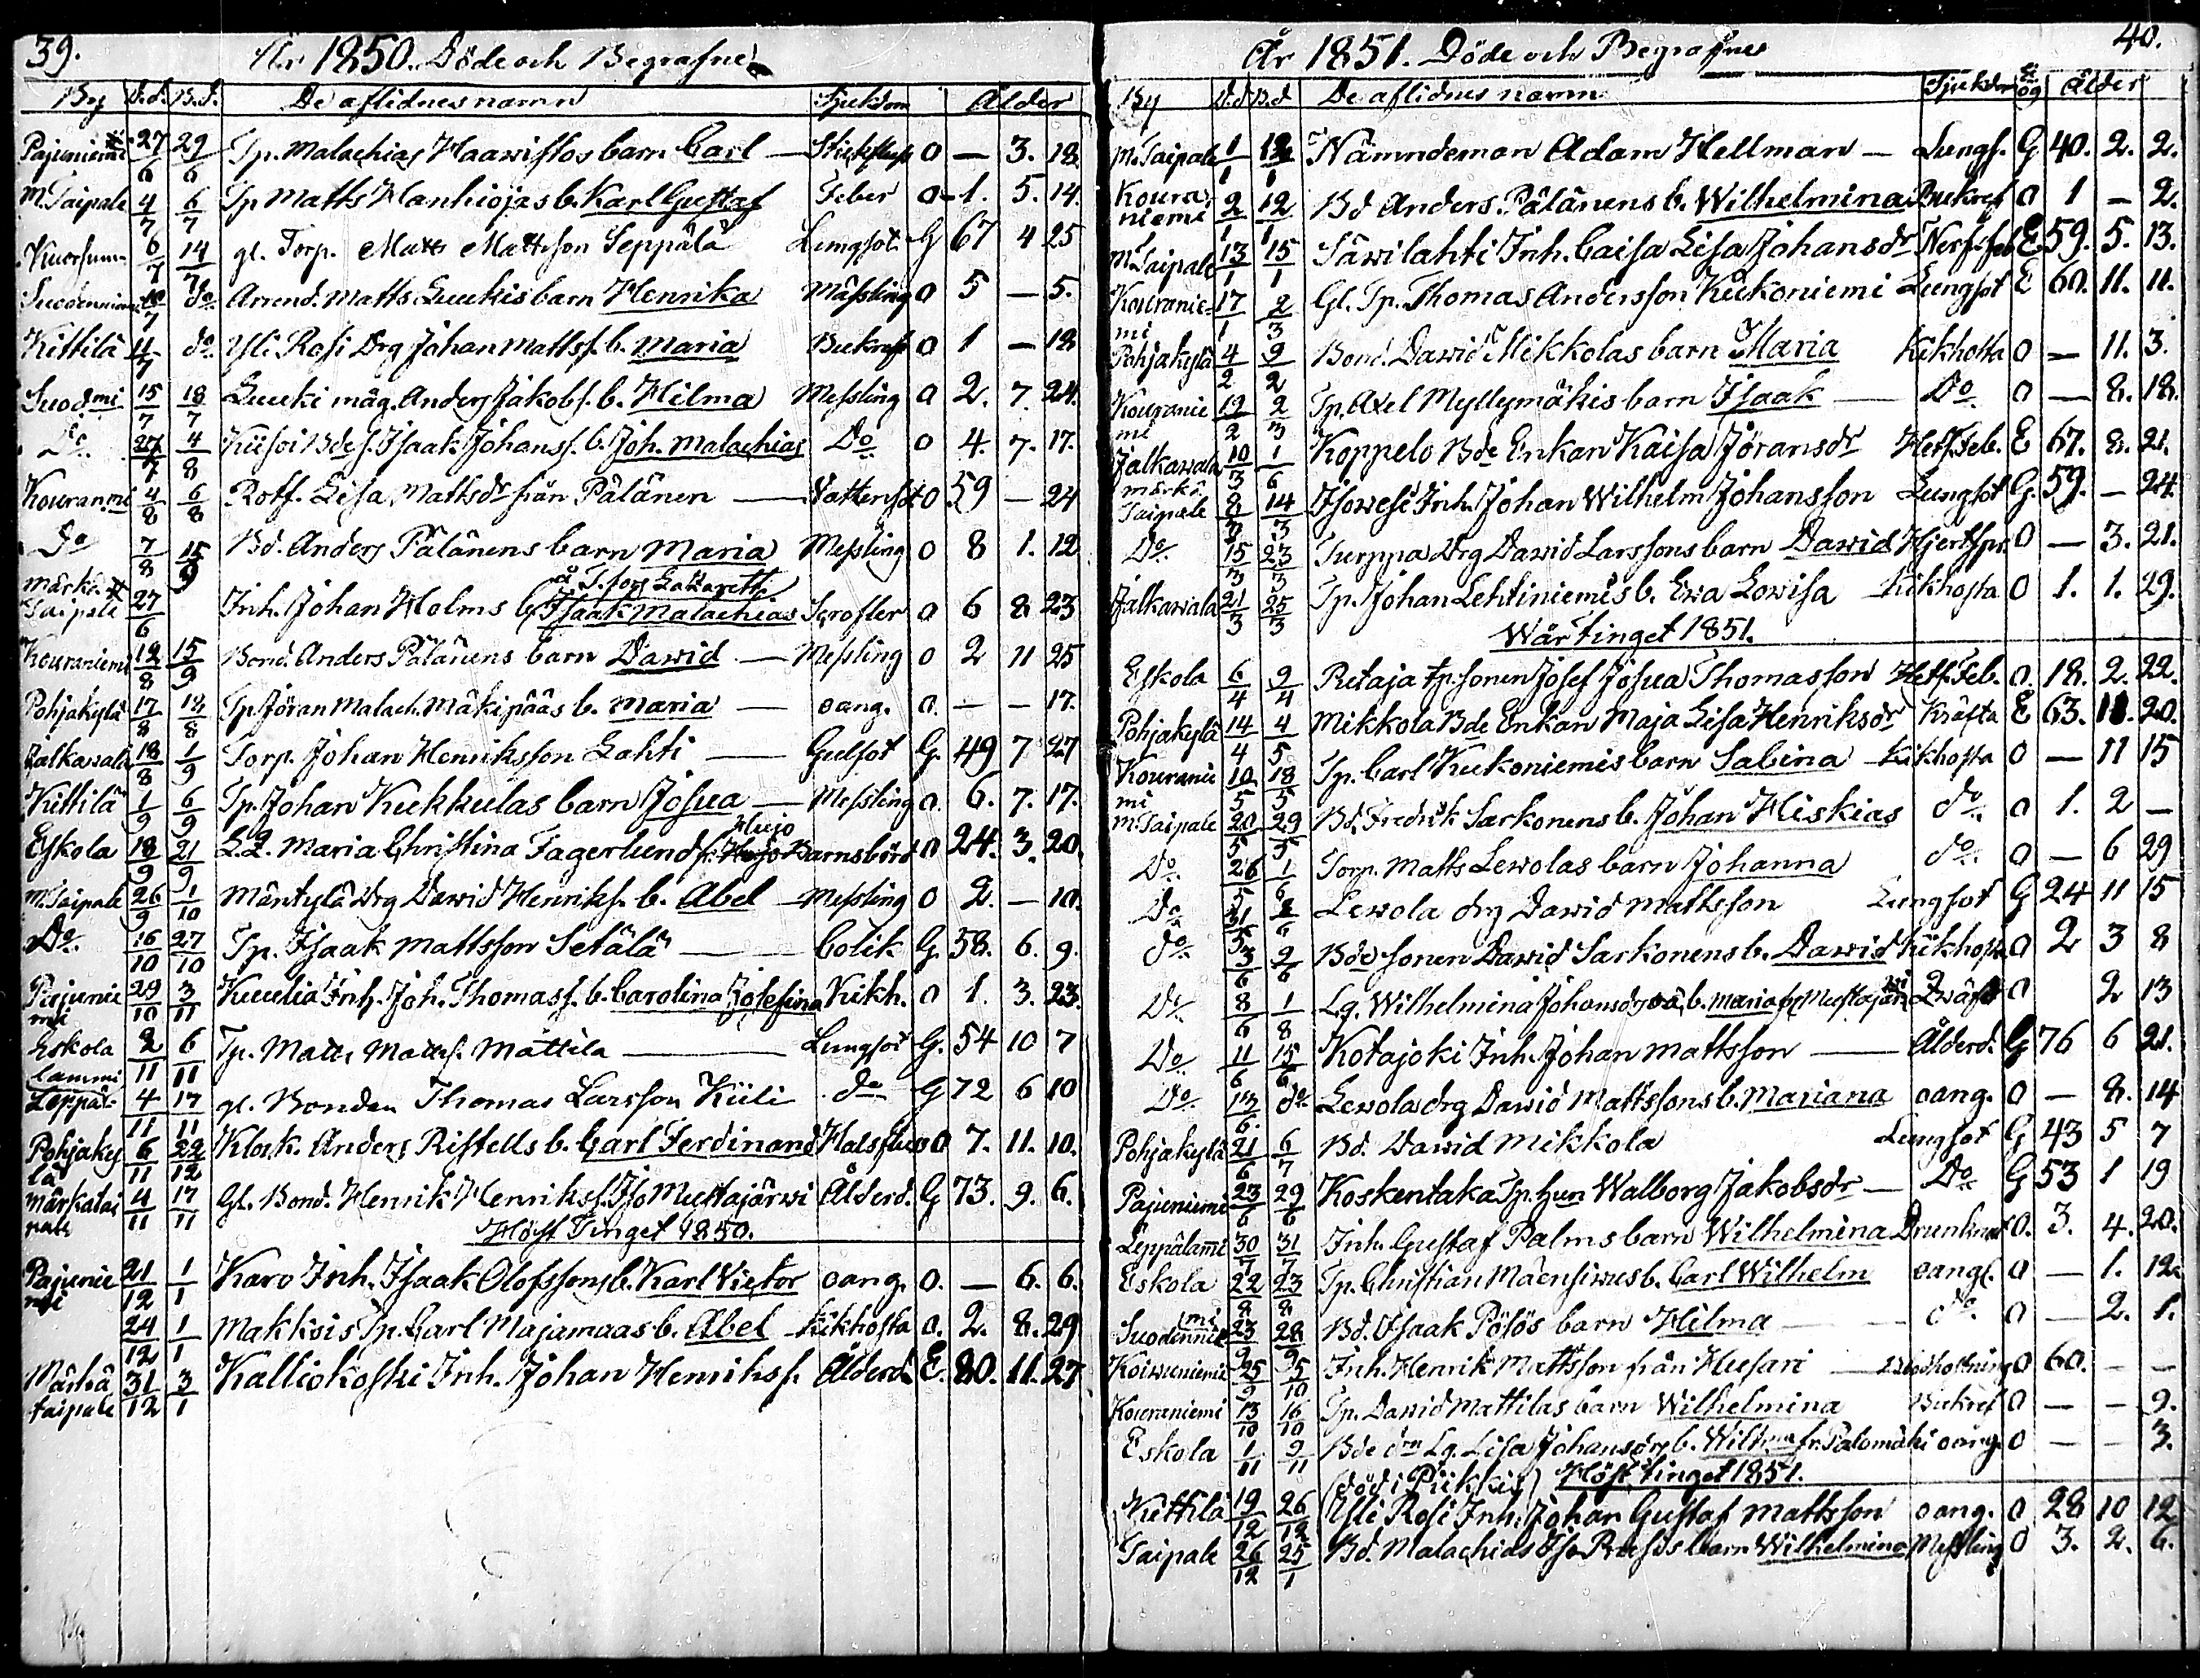 39.
År 1850. Döde och Begrafne
By D.d. B.d. De aflidnes namn Sjukdom Ålder
Pajuniemi 27/6 29/6 Tp. Malachias Haawistos barn Carl — Stickfluss O — 3. 18
M. Taipale 4/7 6/7 Tp Matts Hanhiojas b. Karl Gustaf Feber O 1. 5. 14.
6/7 14/7 gl. Torp. Matts Mattsson Seppälä Lungsot G 67 4 25
10/7 do Arrend. Matts Luukis barn Henrika Mässling O 5 — 5.
Kittilä 11/7 do. Yli Rosi Drg Johan Mattss. b. Maria Bukref O 1 — 18
Suodmi 15/7 18/7 Luuki måg. Anders Jakobs. b. Hilma Messling O 2. 7. 24.
Do. 27/7 4/8 Kiisoi Bdes. Isaak Johanss. b. Joh. Malachias Do O 4. 7. 17.
Kouranmi 4/8 6/8 Rotf. Lisa Mattsdr från Pälänen — Vattensot O 59 — 24
Do 7/8 15/9 Bd. Anders Pälänens barn Maria Messling O 8 1. 12
märkä
Taipale 27/6 Inh. Johan Holms b. Isaak Malachias Scrofler O 6 8 23
Kouraniemi 12/8 15/9 Bond. Anders Pälänens barn Dawid — Messling O 2 11 25
Pohjakylä 17/8 18/8 Tp. Jöran Malach. Mäkipääs b. Maria — oang. O. — — 17.
Jalkawala 18/8 1/9 Torp. Johan Henriksson Lahti — Gulsot G. 49 7 27
Kittilä 1/9 6/9 Tp. Johan Kukkulas barn Josua — Messling O. 6. 7. 17.
Hujo
Eskola 18/9 21/9 Maria Christina Fagerlund fr. Barnsbörd O 24. 3. 20.
M. Taipale 26/9 1/10 Mäntylä Drg Dawid Henrikss. b. Abel — Messling O 2. — 10.
Do. 16/10 27/10 Tp. Isaak Mattsson Setälä — Colik G. 58. 6. 9.
Pajunie
mi 29/10 3/11 Kuulia Inh. Joh. Thomass. b. Carolina Josefina Kikh. O 1. 3. 23.
Eskola 2/11 6/11 Tp. Matts Mattss. Mattila — Lungsot G. 54 10 7
Leppä- 4/11 17/11 gl. Bonden Thomas Larsson Kiili do G 72 6 10
Pohjaky
lä 6/11 22/12 Klock. Anders Ristells b. Carl Ferdinand Halsfluss O 7. 11. 10.
Märkätai
pale 4/11 17/11 Gl. Bond. Henrik Henrikss. Iso Mustajärwi Ålderd. G 73. 9. 6.
Höst Tinget 1850.
Pajunie
mi 21/12 1/1 Karo Inh. Isaak Olofssons b. Karl Victor oang. O. — 6. 6.
24/12 1/1 Makksis Tp. Carl Majamaas b. Abel Kikhosta O. 2. 8. 29
Märkä
taipale 31/12 3/1 Kalliokoski Inh. Johan Henrikss. Ålderd. E. 80. 11. 27
40.
År 1851. Döde och Begrafne
By D.d B.d De aflidnes namn Sjukdom Ålder
M. Taipale 1/1 12/1 Nämndeman Adam Hellman — Lungs. G 40. 2. 2.
Koura
niemi 2/1 12/1 Bd Anders Pälänens b. Wilhelmina Bukref O 1 — 2.
M. Taipale 13/1 15/1 Säwilahti Inh. Caisa Lisa Johansdr Nerffeb E 59. 5. 13.
Kouranie-
mi 17/1 2/3 Gl. Tp. Thomas Andersson Kiukoniemi Lungsot E 60. 11. 11.
Pohjakylä 4/2 9/2 Bond. Dawid Mikkolas barn Maria Kikhosta O — 11. 3.
Kouranie
mi 19/2 2/3 Tp. Axel Myllymäkis barn Isaak — Do O — 8. 18.
Jalkawala 10/3 1/6 Koppelo Bde Enkan Kaisa Jöransdr Hetf. Feb. E 67. 8. 21.
märkä
Taipale 8/3 14/3 Isowesi Inh. Johan Wilhelm Johansson Lungsot G. 59. — 24.
Do. 15/3 23/3 Turppa Drg Dawid Larssons barn Dawid Hjertspr. O — 3. 21.
Jalkawala 21/3 25/3 Tp. Johan Lehtiniemis b. Ewa Lowisa Kikhosta O 1. 1. 29.
Wårtinget 1851.
Eskola 6/4 9/4 Putaja tp. sonen Josef Josua Thomasson Hetf. Feb. O. 18. 2. 22.
Pohjakylä 14/4 4/5 Mikkola Bde Enkan Maja Lisa Henriksdr Kräfta E 63. 11. 20.
Kouranie
mi 10/5 18/5 Tp. Carl Kiukoniemis barn Sabina Kikhosta O — 11 15
M. Taipale 20/5 29/5 Bd. Fredrik Sarkonens b. Johan Hiskias do. O 1. 2 —
Do. 26/5 1/6 Torp. Matts Lewolas barn Johanna do. O — 6 29
Do 31/5 Lewola drg Dawid Mattsson Lungsot G 24 11 15
do. 3/6 9/6 Bde sonen Dawid Sarkonens b. Dawid Kikhosta O 2 3 8
Do. 8/6 1/8 Lg. Wilhelmina Johansdrs oä b. Maria fr. Mustajärwi O 2 13
Do 11/6 15/6 Kotajoki Inh. Johan Mattsson — Ålderd. G 76 6 21.
Do. 13/6 do. Lewola drg Dawid Mattssons b. Mariana oang. O — 8. 14
Pohjakylä 21/6 6/7 Bd. Dawid Mikkola Lungsot G 43 5 7
Pajuniemi 23/6 29/6 Koskentaka Tp. hun Walborg Jakobsdr — Do G 53 1 19
Leppälammi 30/7 31/7 Inh. Gustaf Palms barn Wilhelmina Drunknat O. 3. 4. 20.
Eskola 22/8 23/8 Tp. Christian Mäensiwus b. Carl Wilhelm oang. O — 1. 12.
23/9 28/9 Bd. Isaak Pösös barn Hilma — do. O — 2. 1.
Koiwuniemi 25/9 5/10 Inh. Henrik Mattsson från Husari O 60. — —
Kouraniemi 13/10 16/10 Tp. Dawid Mattilas barn Wilhelmina Bukref O — — 9.
Eskola 1/11 9/11 Bde drn Lg. Lisa Johansdrs b. Wilhma fr. Palomäki oang. O — — 3.
(död i Piikkis) Höst tinget 1851.
Kittilä 19/12 26/12 Ylli Rosi Inh. Johan Gustaf Mattsson oang. O 28 10 12
Taipale 26/12 25/1 Bd. Malachias Iso Prusis barn Wilhelmina Messling O 3. 2. 6.